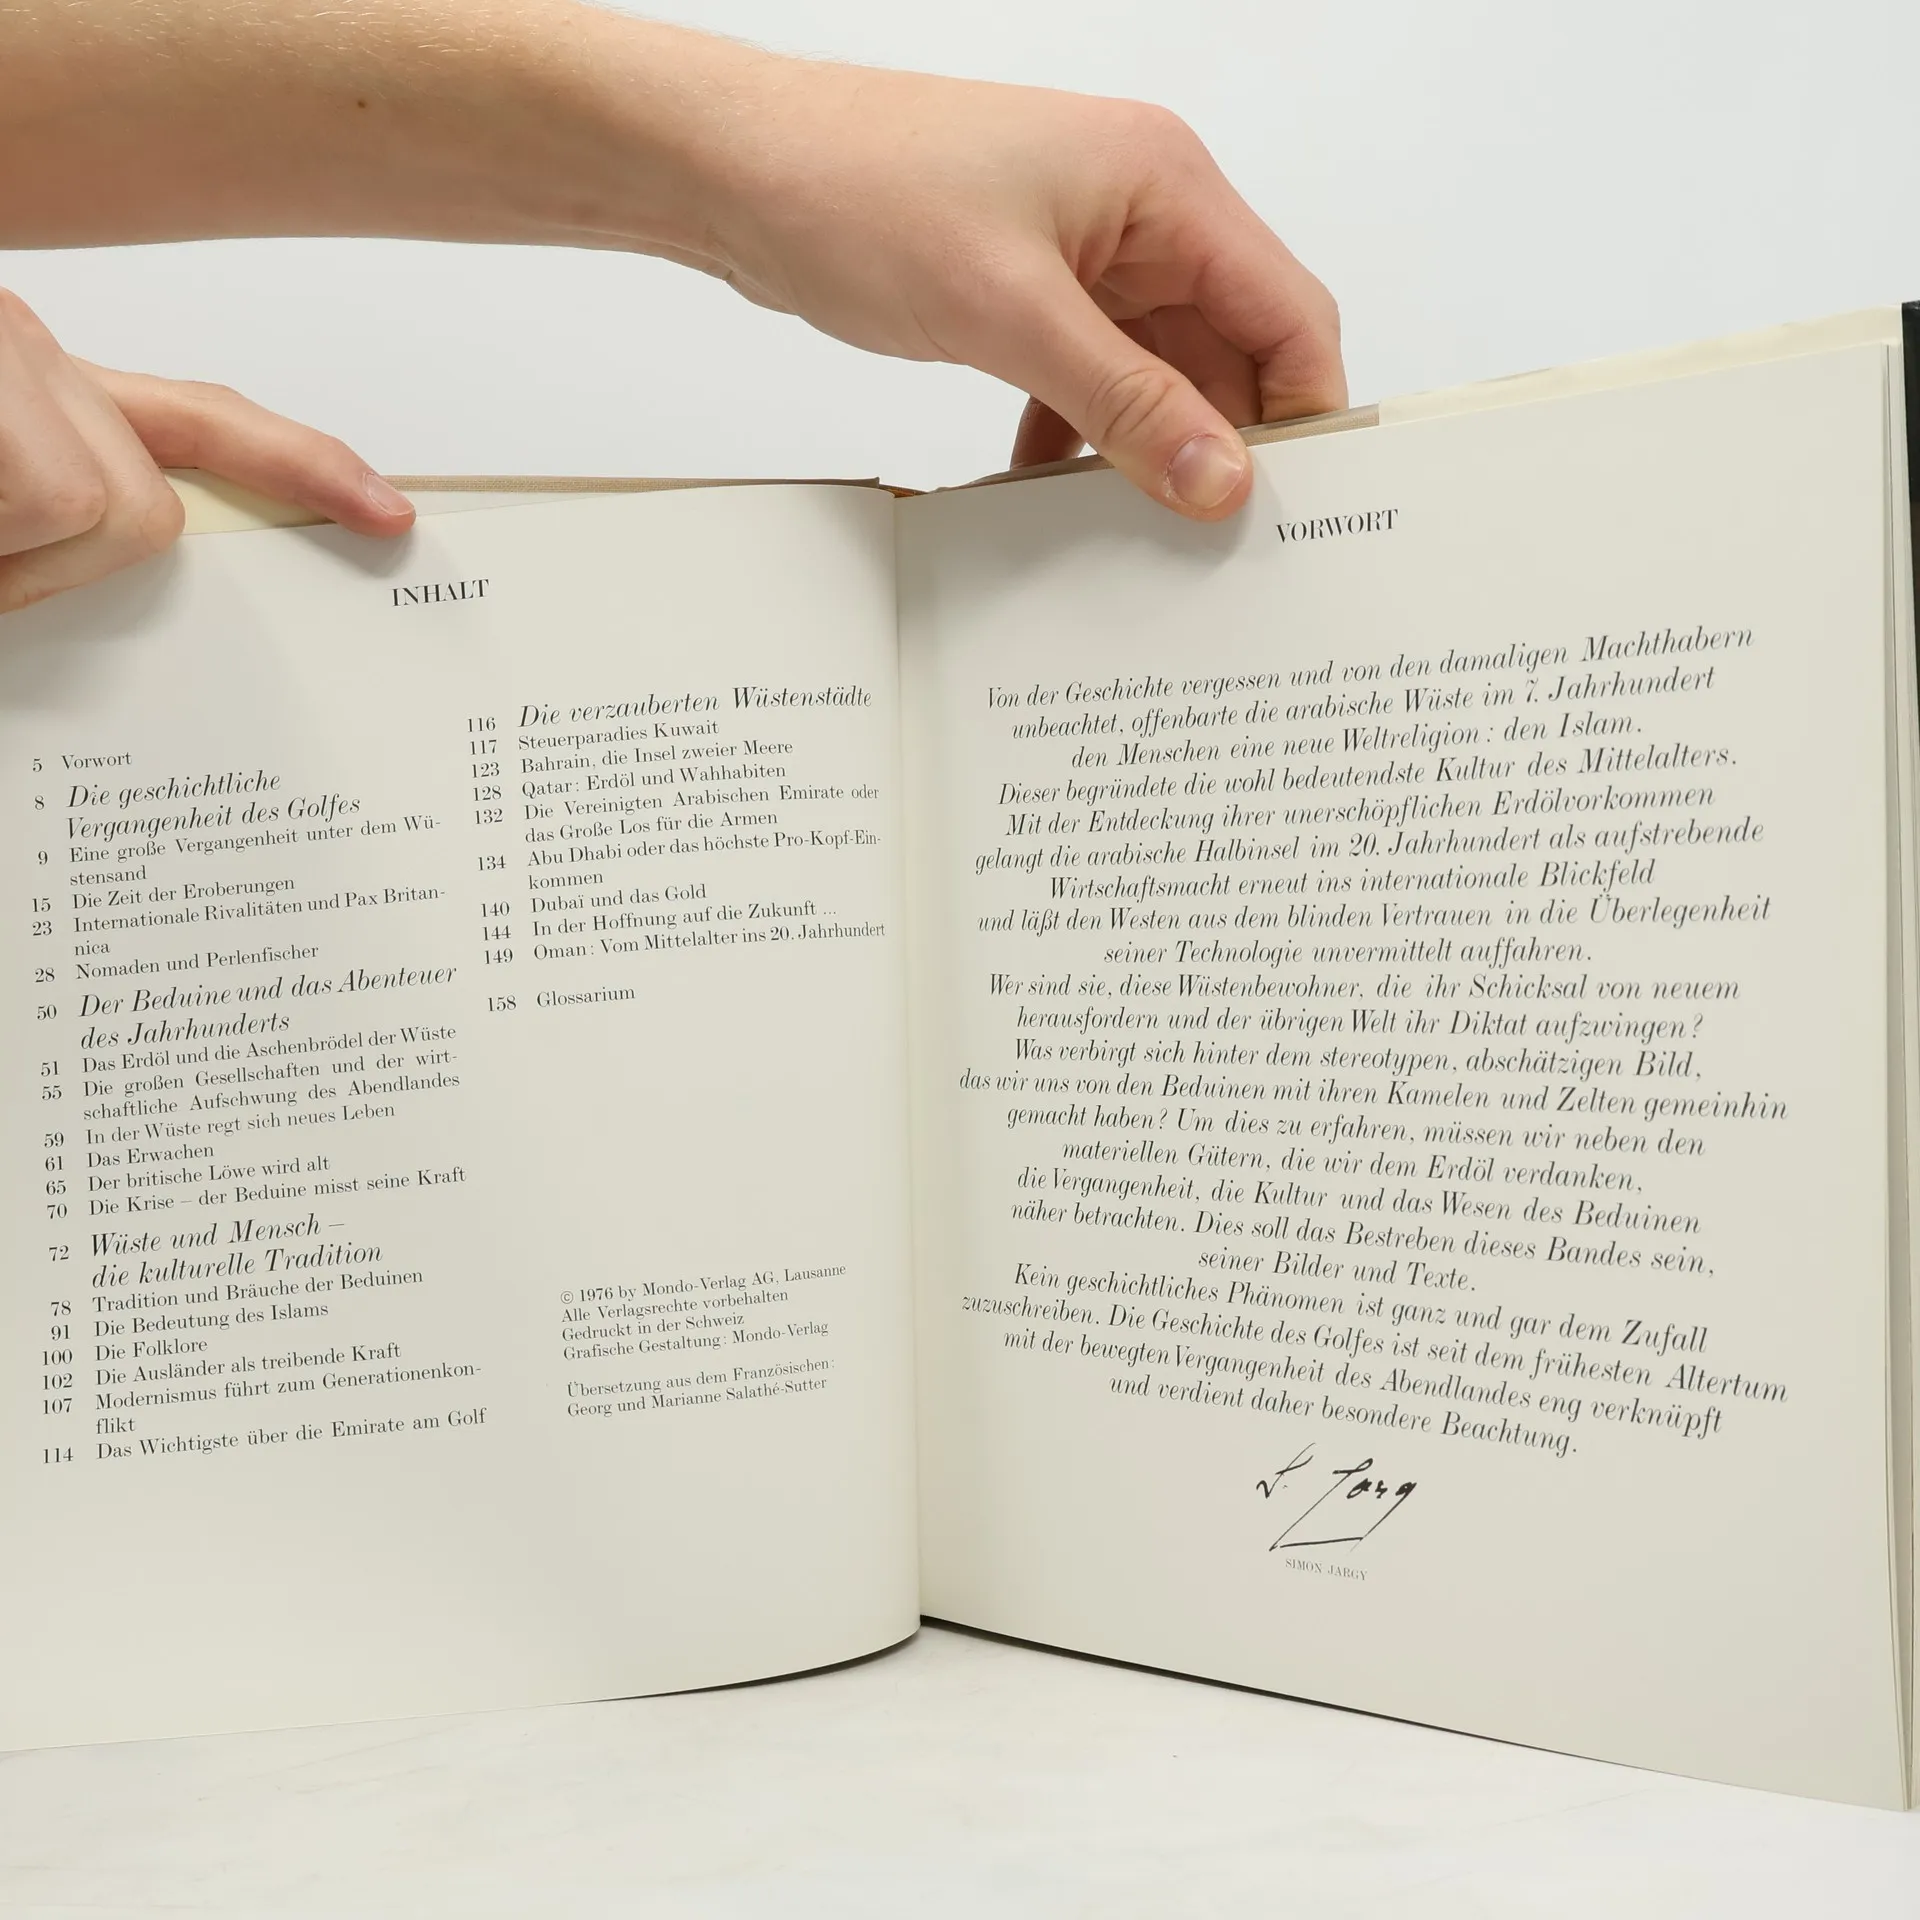 INHALT
5 Vorwort
8 Die geschichtliche
Vergangenheit des Golfes
9 Eine große Vergangenheit unter dem Wü-
stensand
15 Die Zeit der Eroberungen
23 Internationale Rivalitäten und Pax Britan-
nica
28 Nomaden und Perlenfischer
50 Der Beduine und das Abenteuer
des Jahrhunderts
51 Das Erdöl und die Aschenbrödel der Wüste
55 Die großen Gesellschaften und der wirt-
schaftliche Aufschwung des Abendlandes
59 In der Wüste regt sich neues Leben
61 Das Erwachen
65 Der britische Löwe wird alt
70 Die Krise – der Beduine misst seine Kraft
72 Wüste und Mensch –
die kulturelle Tradition
78 Tradition und Bräuche der Beduinen
91 Die Bedeutung des Islams
100 Die Folklore
102 Die Ausländer als treibende Kraft
107 Modernismus führt zum Generationenkon-
flikt
114 Das Wichtigste über die Emirate am Golf
116 Die verzauberten Wüstenstädte
117 Steuerparadies Kuwait
123 Bahrain, die Insel zweier Meere
128 Qatar: Erdöl und Wahhabiten
132 Die Vereinigten Arabischen Emirate oder
das Große Los für die Armen
134 Abu Dhabi oder das höchste Pro-Kopf-Ein-
kommen
140 Dubaï und das Gold
144 In der Hoffnung auf die Zukunft ...
149 Oman: Vom Mittelalter ins 20. Jahrhundert
158 Glossarium
© 1976 by Mondo-Verlag AG, Lausanne
Alle Verlagsrechte vorbehalten
Gedruckt in der Schweiz
Grafische Gestaltung: Mondo-Verlag
Übersetzung aus dem Französischen:
Georg und Marianne Salathé-Sutter
VORWORT
Von der Geschichte vergessen und von den damaligen Machthabern
unbeachtet, offenbarte die arabische Wüste im 7. Jahrhundert
den Menschen eine neue Weltreligion: den Islam.
Dieser begründete die wohl bedeutendste Kultur des Mittelalters.
Mit der Entdeckung ihrer unerschöpflichen Erdölvorkommen
gelangt die arabische Halbinsel im 20. Jahrhundert als aufstrebende
Wirtschaftsmacht erneut ins internationale Blickfeld
und läßt den Westen aus dem blinden Vertrauen in die Überlegenheit
seiner Technologie unvermittelt auffahren.
Wer sind sie, diese Wüstenbewohner, die ihr Schicksal von neuem
herausfordern und der übrigen Welt ihr Diktat aufzwingen?
Was verbirgt sich hinter dem stereotypen, abschätzigen Bild,
das wir uns von den Beduinen mit ihren Kamelen und Zelten gemeinhin
gemacht haben? Um dies zu erfahren, müssen wir neben den
materiellen Gütern, die wir dem Erdöl verdanken,
die Vergangenheit, die Kultur und das Wesen des Beduinen
näher betrachten. Dies soll das Bestreben dieses Bandes sein,
seiner Bilder und Texte.
Kein geschichtliches Phänomen ist ganz und gar dem Zufall
zuzuschreiben. Die Geschichte des Golfes ist seit dem frühesten Altertum
mit der bewegten Vergangenheit des Abendlandes eng verknüpft
und verdient daher besondere Beachtung.
S. Jargy
SIMON JARGY